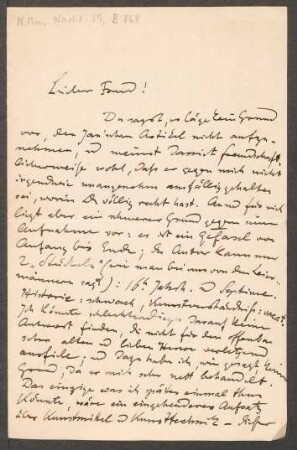 Lieber Freund!
Du sagst, es läge kein Grund
vor, den Jan'schen Artikel nicht aufzu-
nehmen, und meinst damit freundschaft-
licherweise wohl, dass er gegen mich nicht
irgendwie unangenehm ausfällig gehalten
sei, worin du völlig recht hast. Auch für mich
liegt aber ein schwerer Grund gegen eine
Aufnahme vor: es ist ein Gefasel von
Anfang bis Ende; der Autor kann nur
2 (wie man bei uns von den
sagt): 16th Jahrh. u Septime.
Historie: schwach, Kunstverständnis:
Ich könnte schlechterdings darauf keine
Antwort finden, die nicht für den offenbar
schon alten und lieben Herrn verletzend
ausfiele; und dazu habe ich, wie gesagt, keinen
Grund, da er mich sehr nett behandelt.
Das einzige was ich später einmal thun
könnte, wäre ein eingehenderer Aufsatz
über Kunstmittel u Kunsttechnik – dieser